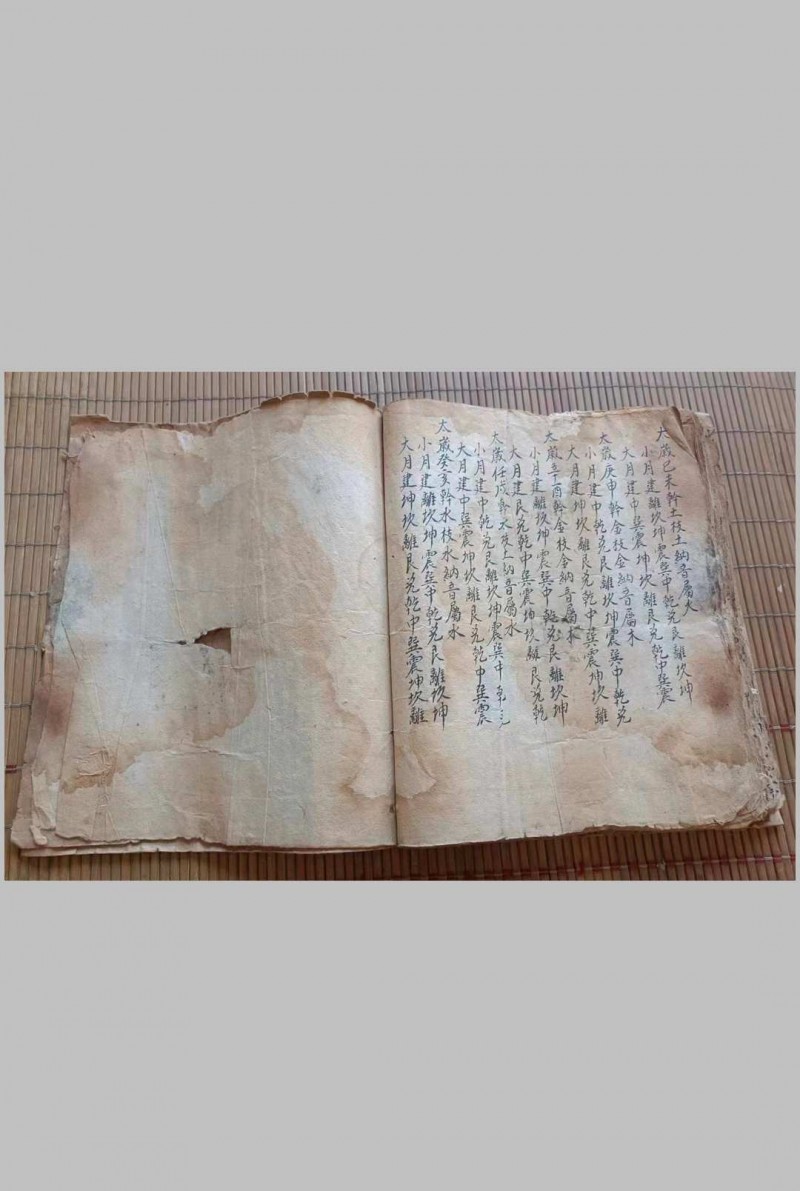 太歲己未幹土枝土納音屬火
小月建離坎坤震巽中乾兌艮離坎坤
大月建中巽震坤坎離艮兌乾中巽震
太歲庚申幹金枝金納音屬木
小月建中乾兌艮離坎坤震巽中乾兌
大月建坤坎離艮兌乾中巽震坤坎離
太歲辛酉幹金枝金納音屬木
小月建離坎坤震巽中乾兌艮離坎坤
大月建艮兌乾中巽震坤坎離艮兌乾
太歲任戌幹水枝土納音屬水
小月建中乾兌艮離坎坤震巽中乾兌
大月建中巽震坤坎離艮兌乾中巽震
太歲癸亥幹水枝水納音屬水
小月建離坎坤震巽中乾兌艮離坎坤
大月建坤坎離艮兌乾中巽震坤坎離